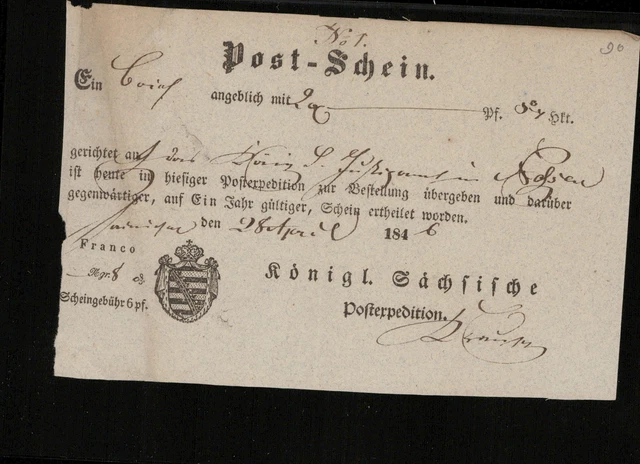 No 1.
90
Post-Schein.
Ein Brief
angeblich mit Pf. Lkt.
gerichtet an das Königl. Justizamt in Nossen
ist heute in hiesiger Postexpedition zur Bestellung übergeben und darüber
gegenwärtiger, auf Ein Jahr gültiger, Schein ertheilet worden.
den 28 April 1846
Franco
Ngr. 8
Königl. Sächsische
Scheingebühr 6 pf.
Postexpedition.